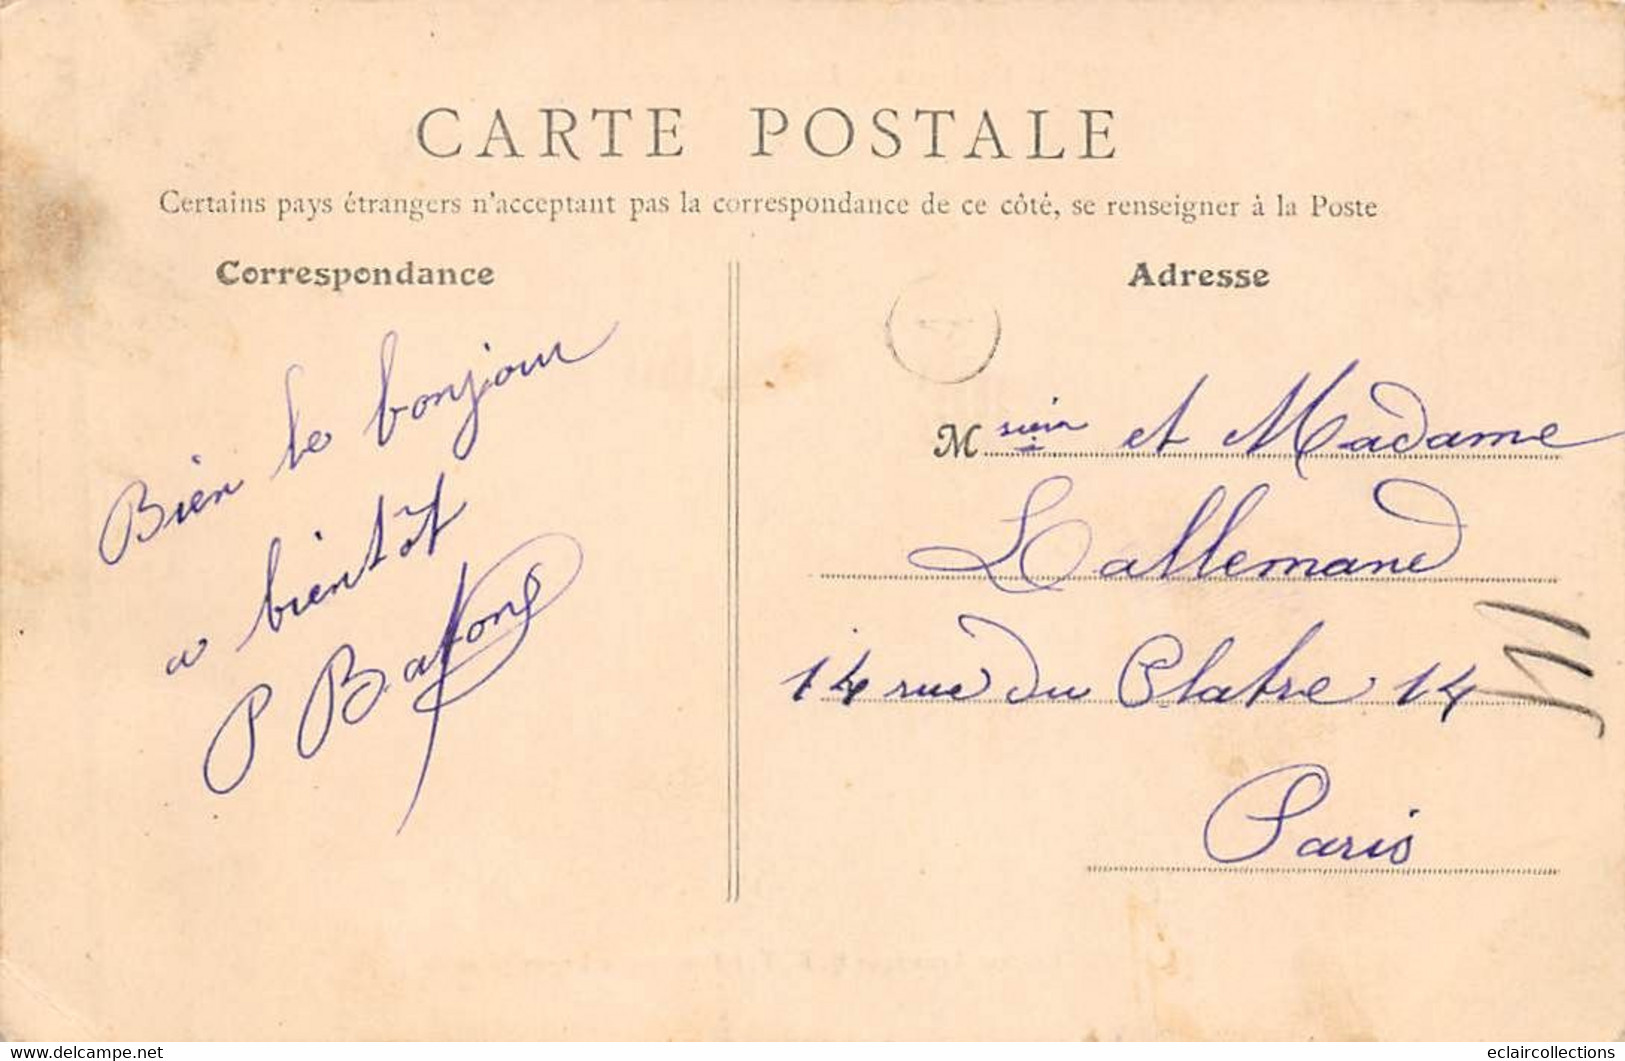 CARTE POSTALE
Certains pays étrangers n'acceptant pas la correspondance de ce côté, se renseigner à la Poste
Correspondance
Bien le bonjour
a bientôt
P
Adresse
Msieur et Madame
Lallemand
14 rue du Platre 14
Paris
delcampe.net
eclaircollections